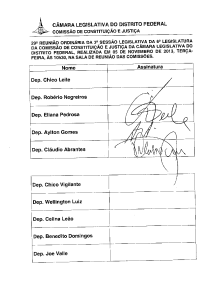 CÂMARA LEGISLATIVA DO DISTRITO FEDERAL
COMISSÃO DE CONSTITUIÇÃO E JUSTIÇA
29ª REUNIÃO ORDINÁRIA DA 3ª SESSÃO LEGISLATIVA DA 6ª LEGISLATURA
DA COMISSÃO DE CONSTITUIÇÃO E JUSTIÇA DA CÂMARA LEGISLATIVA DO
DISTRITO FEDERAL, REALIZADA EM 05 DE NOVEMBRO DE 2013, TERÇA-
FEIRA, ÀS 10h30, NA SALA DE REUNIÃO DAS COMISSÕES.
Nome Assinatura
Dep. Chico Leite
Dep. Robério Negreiros
Dep. Eliana Pedrosa
Dep. Aylton Gomes
Dep. Cláudio Abrantes
Dep. Chico Vigilante
Dep. Wellington Luiz
Dep. Celina Leão
Dep. Benedito Domingos
Dep. Joe Valle